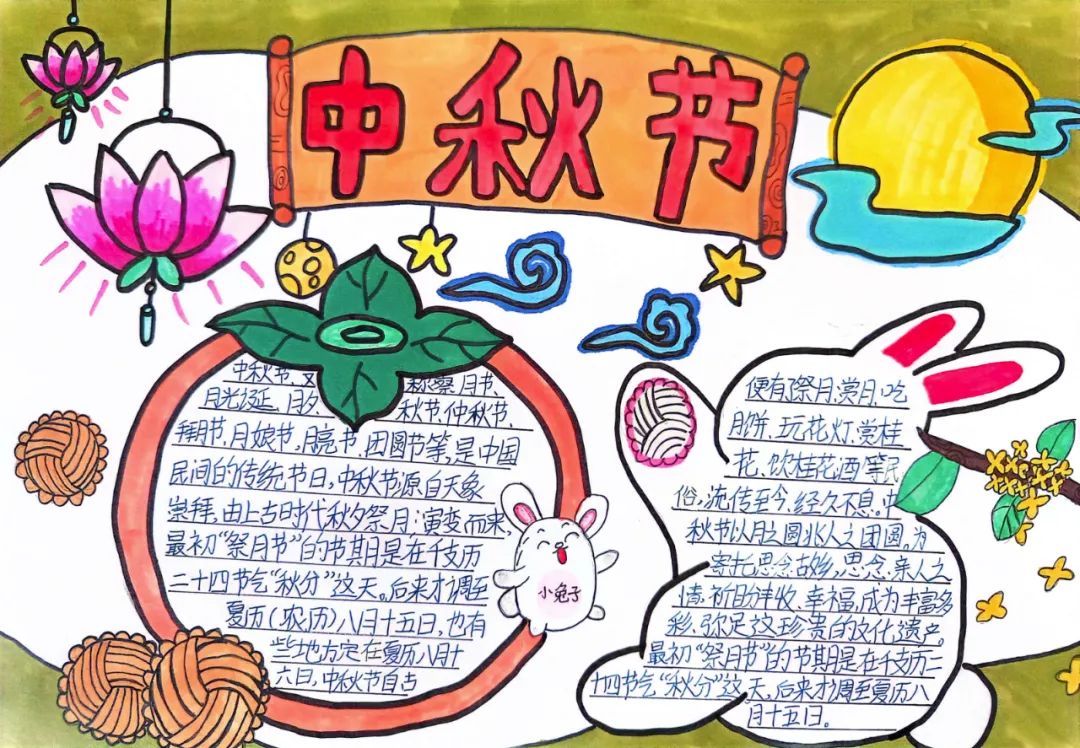 中秋节
中秋节、又 称祭月节、
月光诞、月夕 秋节、仲秋节、
拜月节、月娘节、月亮节、团圆节等，是中国
民间的传统节日，中秋节源自天象
崇拜，由上古时代秋夕祭月；演变而来，
最初“祭月节”的节期是在干支历
二十四节气“秋分”这天。后来才调至
夏历（农历）八月十五日，也有
些地方定在夏历八月十
六日，中秋节自古
小兔子
便有祭月、赏月、吃
月饼、玩花灯、赏桂
花、饮桂花酒等民
俗，流传至今，经久不息。中
秋节以月之圆兆人之团圆。为
寄托思念故乡，思念亲人之
情，祈盼丰收、幸福，成为丰富多
彩、弥足这珍贵的文化遗产。
最初“祭月节”的节期是在干支历二
十四节气“秋分”这天。后来才调至夏历八
月十五日。